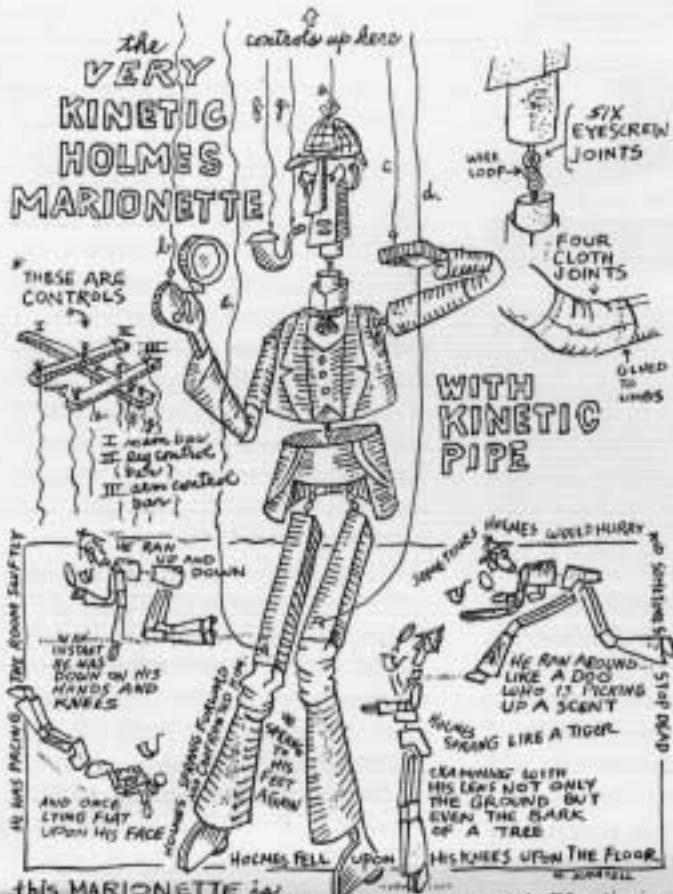 the
VERY
KINETIC
HOLMES
MARIONETTE
controls up here
SIX
EYESCREW
JOINTS
WIRE
LOOP
FOUR
CLOTH
JOINTS
GLUED
TO
LIMBS
a.
b.
c.
d.
e.
g.
THESE ARE
CONTROLS
I
II
III
I main bar
II leg control
(bar)
III arm control
bar
WITH
KINETIC
PIPE
HE RAN
UP AND
DOWN
INSTANT
HE WAS
DOWN ON HIS
HANDS AND
KNEES
HE WAS PACING THE ROOM SWIFTLY
AND ONCE
LYING FLAT
UPON HIS FACE
HOLMES SPRANG FORWARD
HE SPRANG
TO
HIS
FEET
AGAIN
SOMETIMES HOLMES WOULD HURRY
AND SOMETIMES STOP DEAD
HE RAN AROUND...
LIKE A DOG
WHO IS PICKING
UP A SCENT
HOLMES
SPRANG LIKE A TIGER
EXAMINING WITH
HIS LENS NOT ONLY
THE GROUND BUT
EVEN THE BARK
OF A TREE
HOLMES FELL UPON HIS KNEES UPON THE FLOOR
this MARIONETTE is